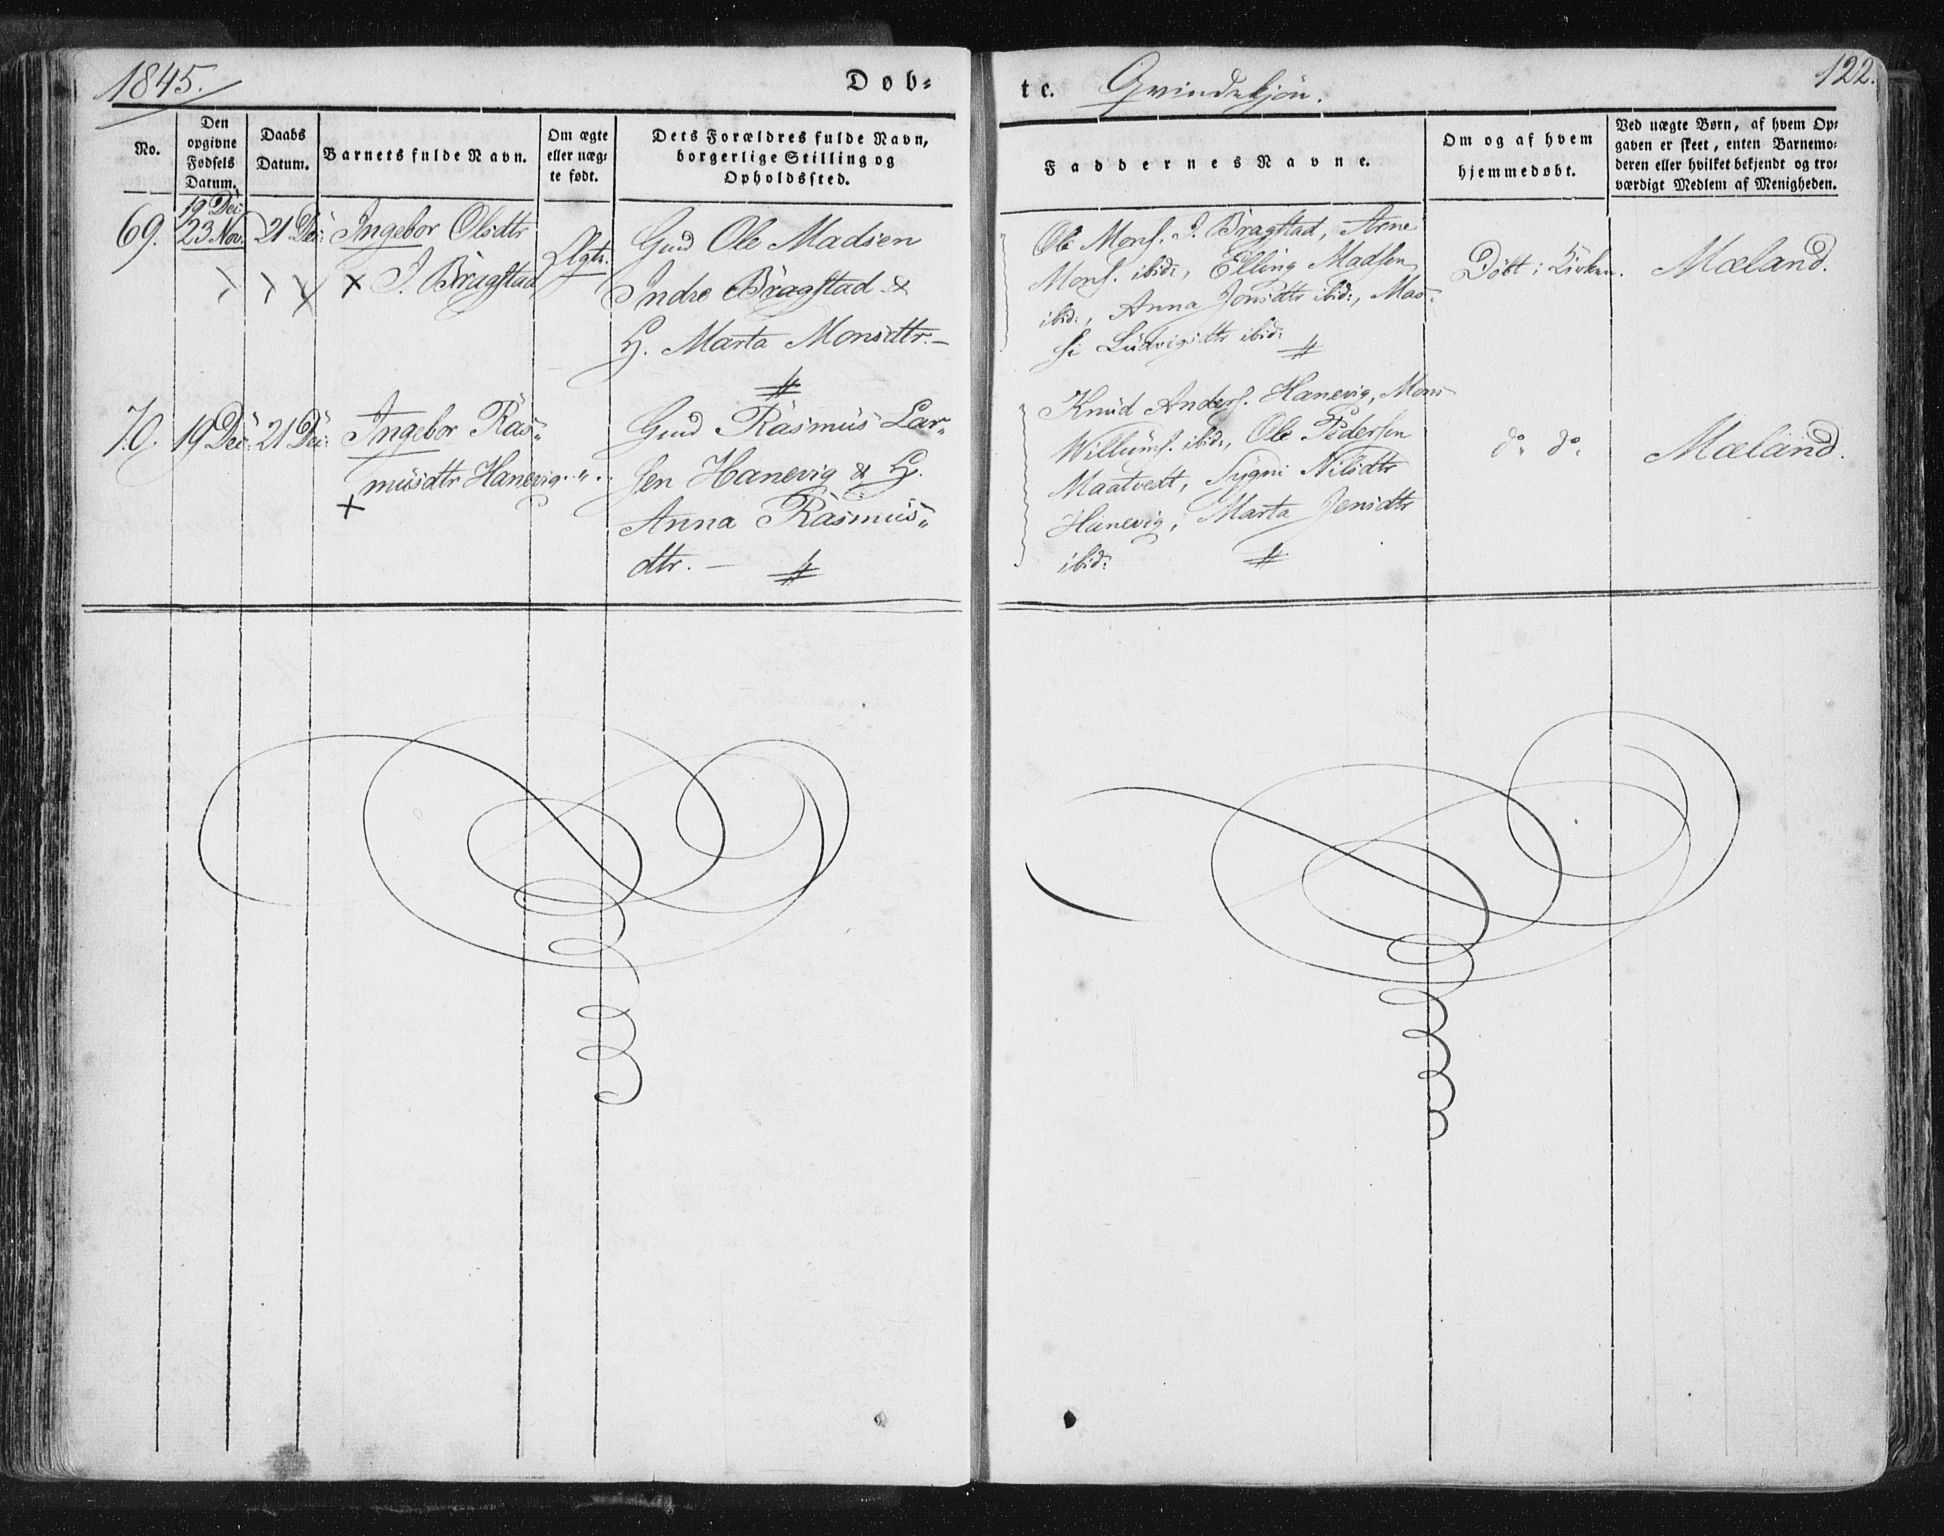 1845.
Døb-
te. Qvindekjøn.
122.
No.
Den
opgivne
Fødsels
Datum.
Daabs
Datum.
Barnets fulde Navn.
Om ægte
eller uæg-
te født.
Dets Forældres fulde Navn,
borgerlige Stilling og
Opholdssted.
Faddernes Navne.
Om og af hvem
hjemmedøbt.
Ved uægte Børn, af hvem Op-
gaven er skeet, enten Barnemo-
deren eller hvilket bekjendt og tro-
værdigt Medlem af Menigheden.
69.
19 Dec:
23. Nov.
21 Dec:
Ingebor Olsdtr
I. Bragstad
Ægte.
Gmd Ole Madsen
Indre Bragstad &
H. Marta Monsdtr.—
Ole Mons. I. Bragstad, Arne
Mons. ibid:, Elling Madsen
ibid:, Anna Jonsdtr ibid:, Mar-
si Ludvigsdtr ibid:
Døbt i Kirken.
Mæland.
70.
19 Dec:
21 Dec:
Ingebor Ras-
musdtr Hanevig.
„.
Gmd Rasmus Lar-
sen Hanevig & H.
Anna Rasmus-
dtr. —
Knud Anders. Hanevig, Mons
Willums. ibid:, Ole Pedersen
Maatvedt, Sygni Nilsdtr
Hanevig, Marta Jensdtr
ibid:
do. do.
Mæland.